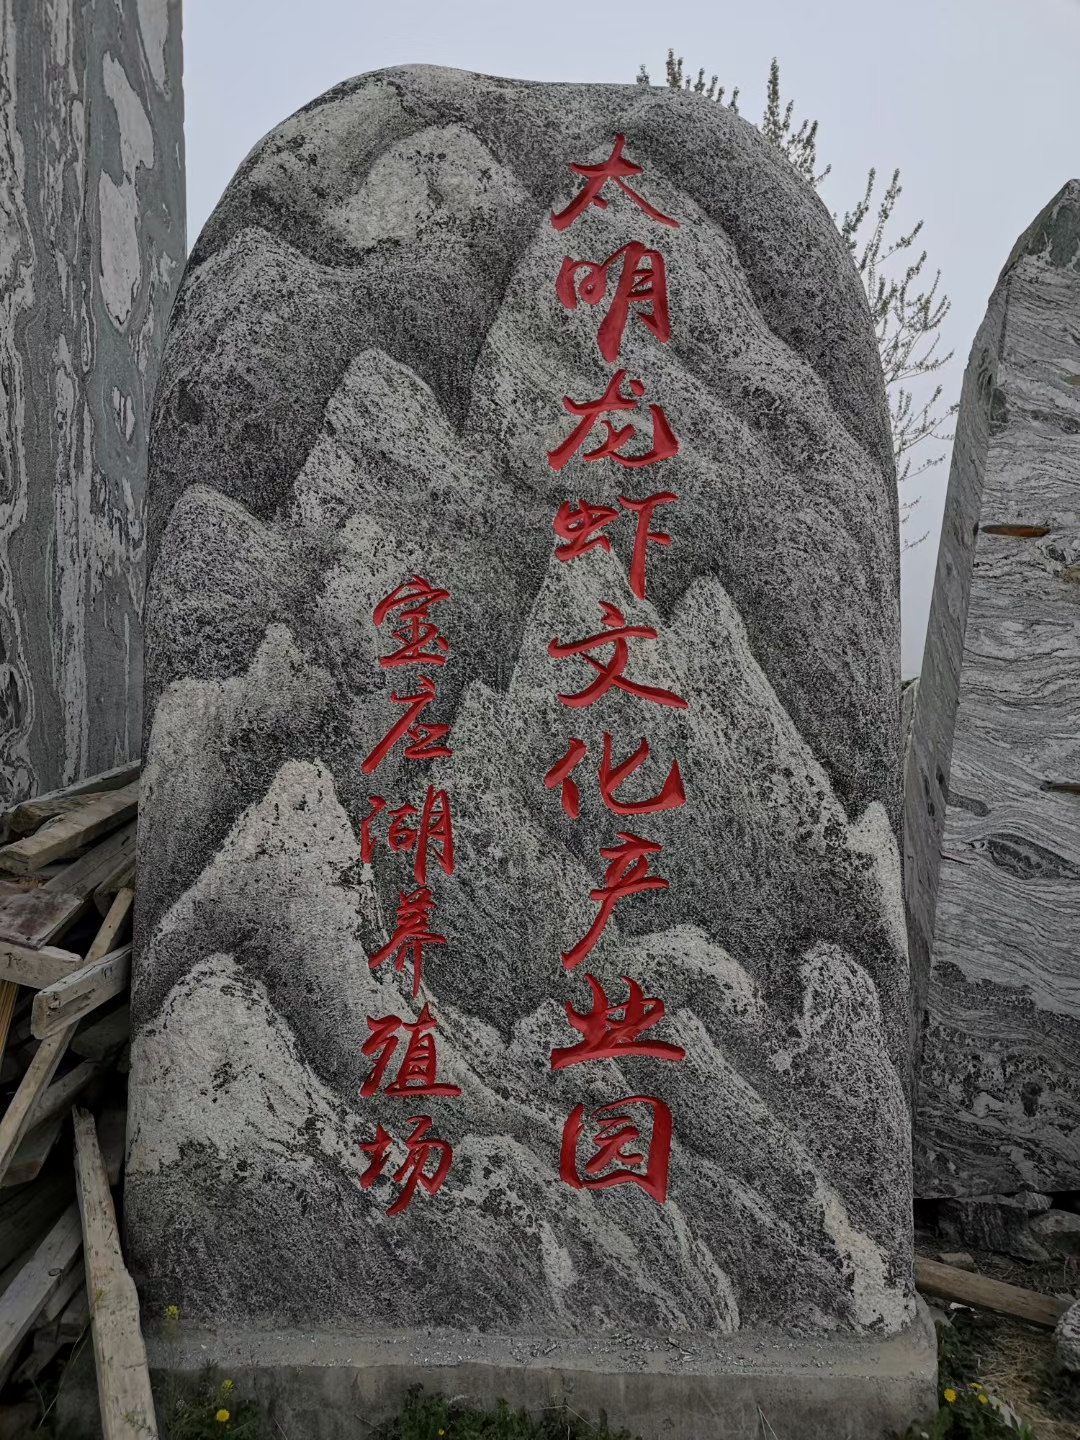 太明龙虾文化产业园
宝应湖养殖场